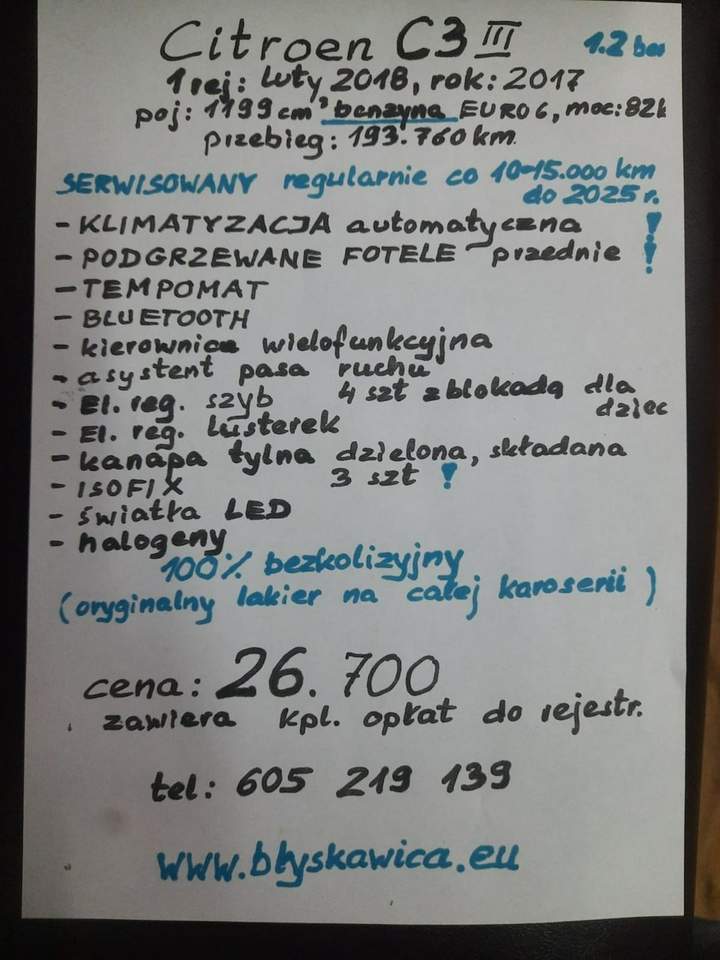 Citroen C3 III 1.2 ben
1 rej: luty 2018, rok: 2017
poj: 1199 cm³ benzyna EURO 6, moc: 82k
przebieg: 193.760 km
SERWISOWANY regularnie co 10-15.000 km
do 2025 r.
- KLIMATYZACJA automatyczna !
- PODGRZEWANE FOTELE przednie !
- TEMPOMAT
- BLUETOOTH
- kierownica wielofunkcyjna
- asystent pasa ruchu
- El. reg. szyb 4 szt z blokadą dla
dziec
- El. reg. lusterek
- kanapa tylna dzielona, składana
- ISOFIX 3 szt !
- światła LED
- halogeny
100% bezkolizyjny
(oryginalny lakier na całej karoserii)
cena: 26.700
zawiera kpl. opłat do rejestr.
tel: 605 219 139
www.błyskawica.eu